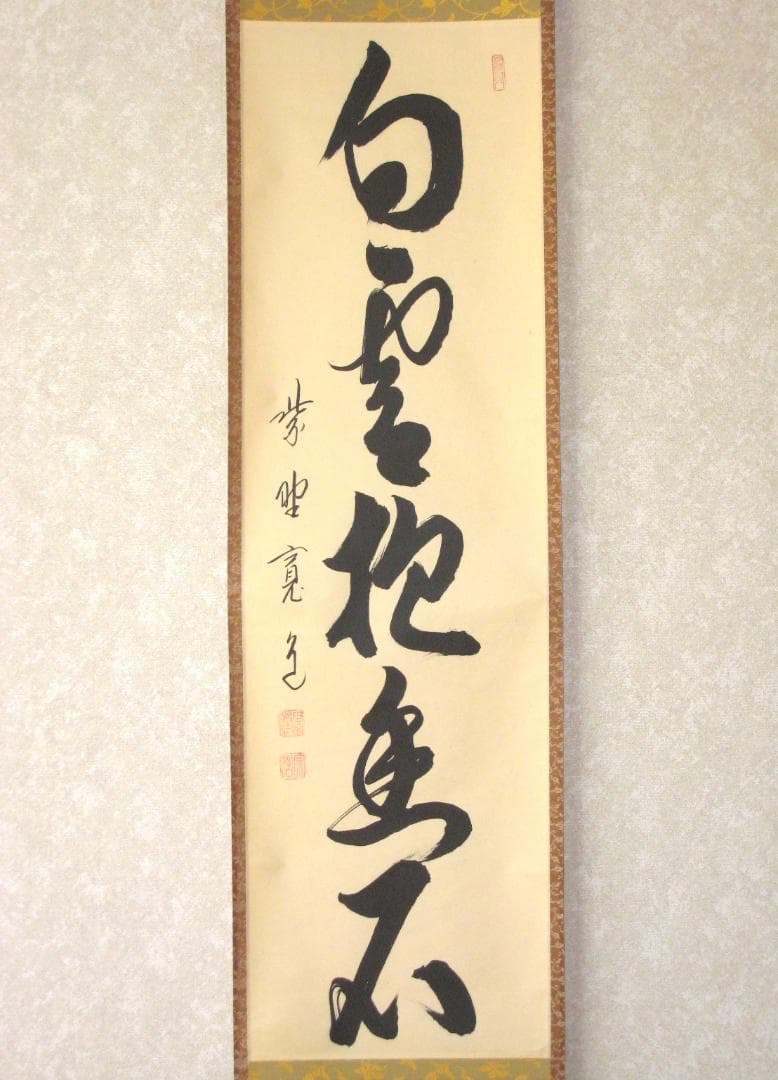 白雲抱幽石
紫野寛道